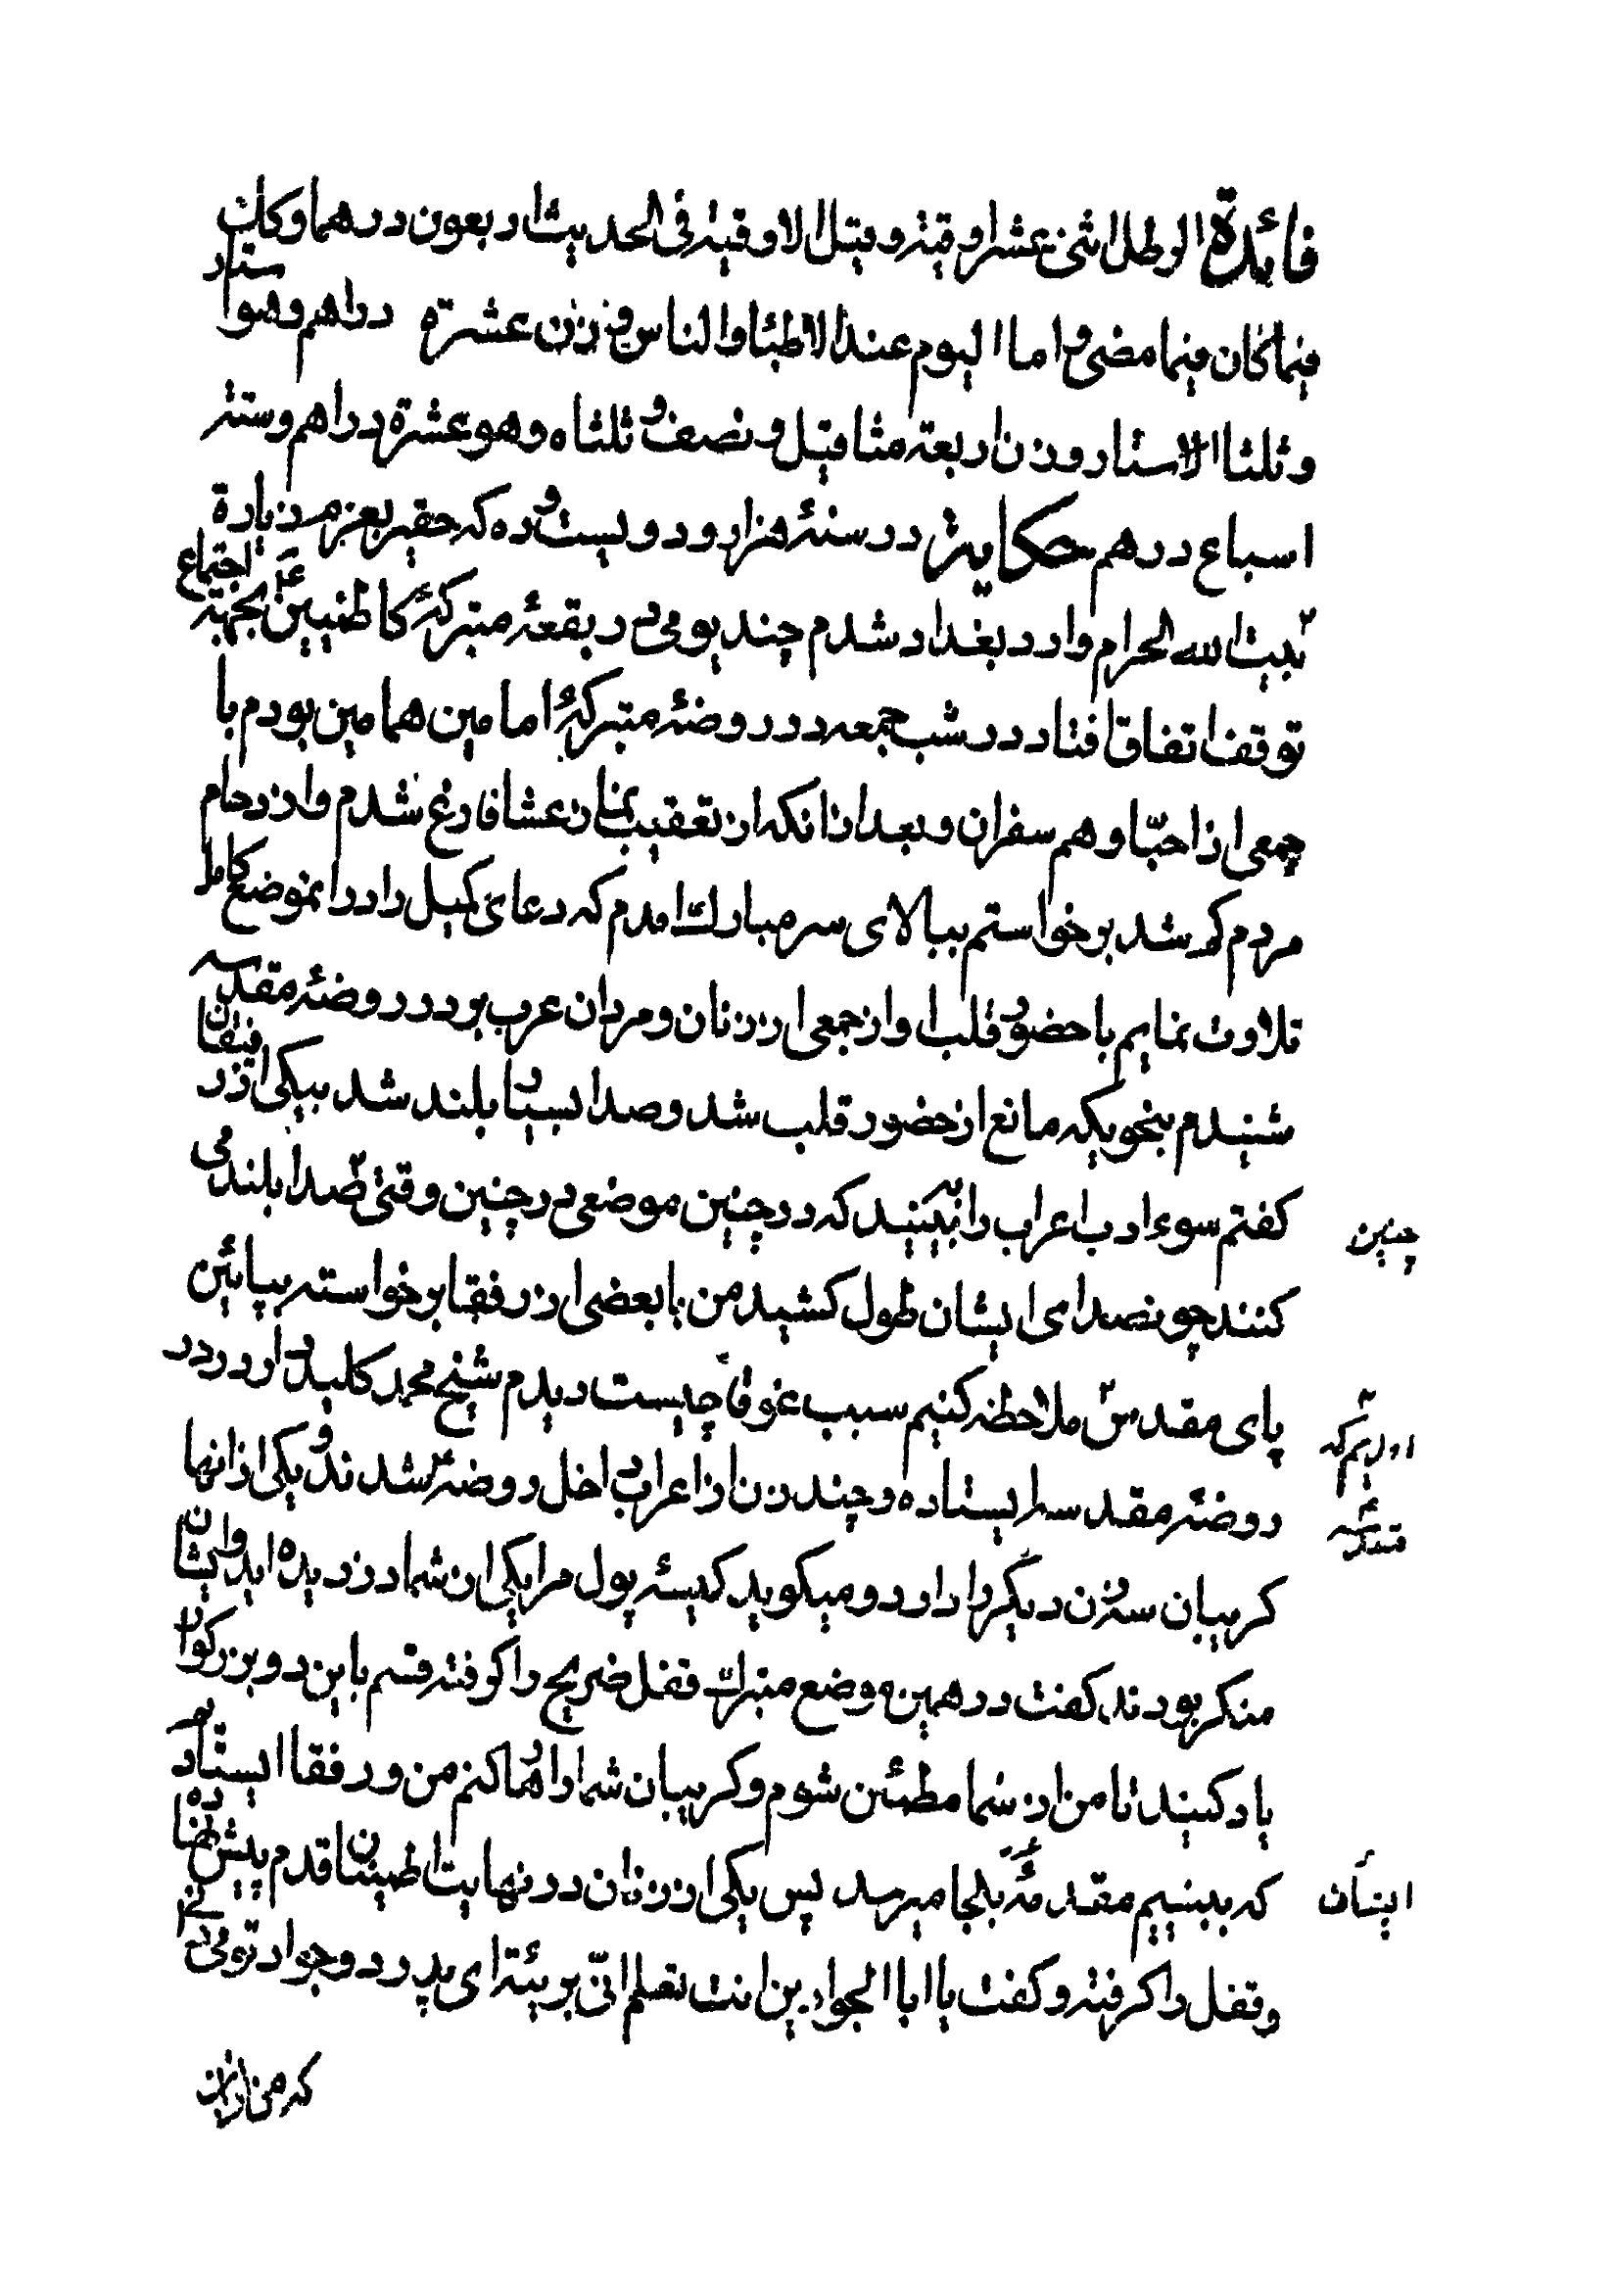 فائدة الرطل اثنی عشر اوقیة و قیل الاوقیة فی الحدیث اربعون درهما وکان
فیما کان فیما مضی و اما الیوم عند الاطباء والناس فوزن عشرة دراهم وهو استار
وثلثا الاستار وزن اربعة مثاقیل و نصف و ثلثاه وهو عشرة دراهم وستة
اسباع درهم حکایة در سنهٔ هزار و دویست و ده که حقیر بعزم زیارة
بیت الله الحرام وارد بغداد شدم چند یومی در بقعهٔ متبرکهٔ کاظمیین بجهة اجتماع
توقف اتفاق افتاد در شب جمعه در روضهٔ متبرکهٔ امامین همامین بودم با
جمعی از احبّا و هم سفران و بعد از انکه از تعقیب نماز عشا فارغ شدم و ازدحام
مردم کم شد برخواستم ببالای سر مبارک امدم که دعای کمیل را در انموضع کامل
تلاوت نمایم با حضور قلب اواز جمعی از زنان و مردان عرب بر در روضهٔ مقدسه
شنیدم بنحویکه مانع از حضور قلب شد و صدا بسیار بلند شد بیکی از رفیقان
کفتم سوء ادب اعراب را به بینید که در چنین موضعی در چنین وقتی صدا بلند می
چنین
کنند چون صدای ایشان طول کشید من با بعضی از رفقا برخواسته بپائین
پای مقدس ملاحظه کنیم سبب غوغا چیست دیدم شیخ محمد کلیددار در در
امدیم که
روضهٔ مقدسه ایستاده و چند زن از اعراب داخل روضه شدند و یکی از انها
مقدسه
کریبان سه زن دیگر را دارد و میکوید کیسهٔ پول مرا یکی از شما دزدیده اید و ایشان
منکر بودند کفت در همین موضع متبرک قفل ضریح را کرفته قسم باین دو بزرکوار
یاد کنید تا من از شما مطمئن شوم و کریبان شما را رها کنم من و رفقا ایستاده
که ببینیم مقدمه بکجا میرسد پس یکی از زنان در نهایت اطمینان قدم پیش نهاده
ایشان
و قفل را کرفته و کفت یا ابا الجوادین انت تعلم انّی بریئة ای پدر دو جواد تو می
که من از ان